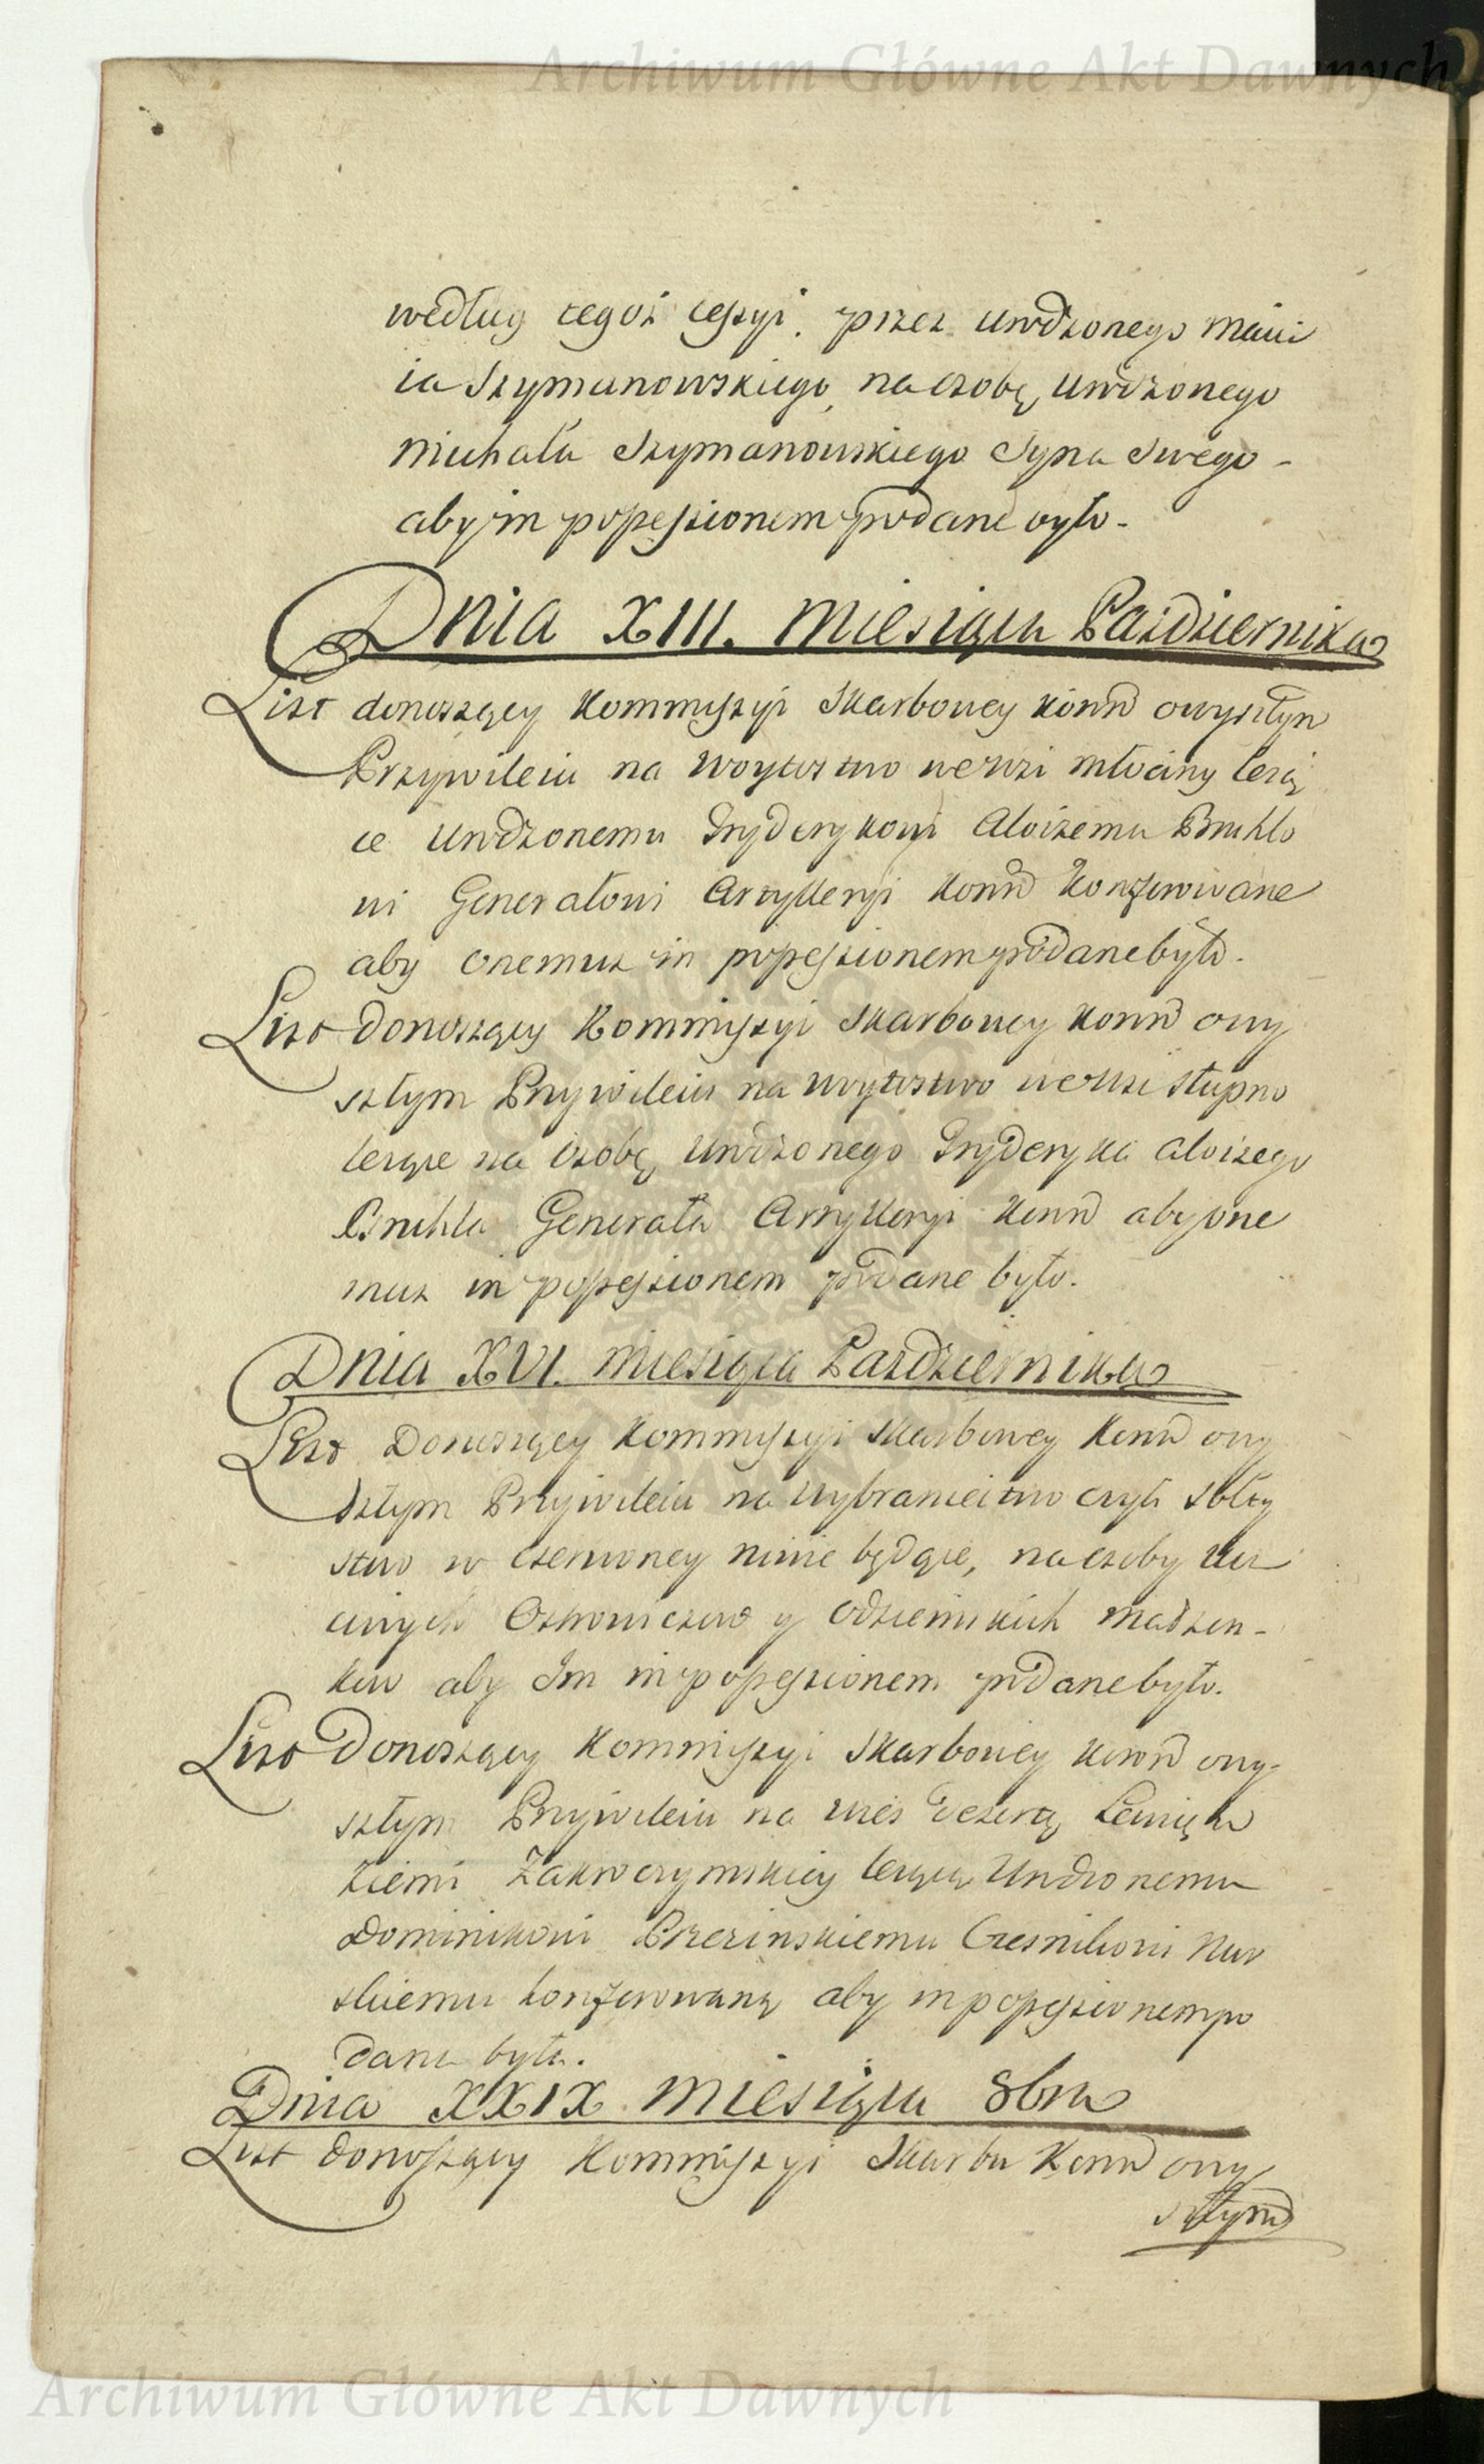 Archiwum Główne Akt Dawnych
według tegoż cessyi przez urodzonego Maci
ia Szymanowskiego, na osobę urodzonego
Michała Szymanowskiego Syna Swego -
aby in possessionem podane było -
Dnia XIII. Miesiąca Pazdziernika
List donoszący Kommissyi Skarbowey Koron o wyszłym
Przywileiu na Woytostwo we wsi Młociny leżą
ce Urodzonemu Fryderykowi Aloizemu Bruhlo
wi Generałowi Artylleryi Koron konferowane
aby onemuz in possessionem podane było.
List donoszący Kommissyi Skarbowey Koron o wy
szłym Przywileiu na woytostwo we wsi Słupno
leżące na osobę Urodzonego Fryderyka Aloizego
Bruhla Generała Artylleryi Koron aby one
muz in possessionem podane było.
Dnia XVI. Miesiąca Pazdziernika
List Donoszący Kommissyi Skarbowey Koron o wy
szłym Przywileiu na wybraniectwo czyli Sołty
stwo w Czerwoney Niwie będące, na osoby Ucz
ciwych y Małżon-
ków aby Im in possessionem podane było.
List Donoszący Kommissyi Skarbowey Koron o wy-
szłym Przywileiu na wieś
Ziemi Zakroczymskiey leżącą Urodzonemu
Dominikowi Brzezinskiemu Czesnikowi Nur
skiemu konferowaną aby in possessionem po
dana była.
Dnia XXIX Miesiąca 8bra
List donoszący Kommissyi Skarbu Koron o wy
szłym
Archiwum Główne Akt Dawnych